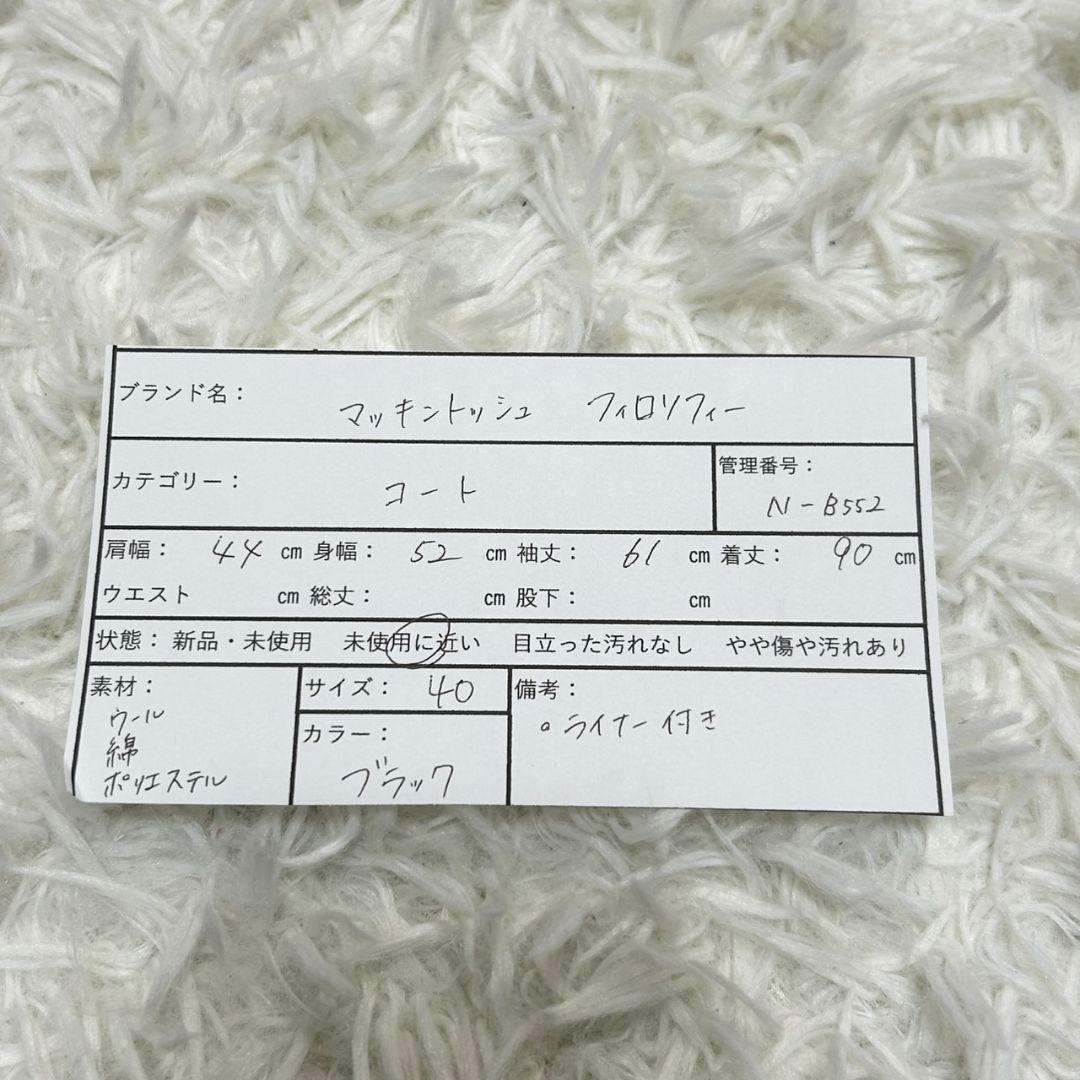 ブランド名： マッキントッシュ フィロソフィー
カテゴリー： コート
管理番号： N-B552
肩幅： 44 cm 身幅： 52 cm 袖丈： 61 cm 着丈： 90 cm
ウエスト cm 総丈： cm 股下： cm
状態： 新品・未使用 未使用に近い 目立った汚れなし やや傷や汚れあり
素材：
ウール
綿
ポリエステル
サイズ： 40
カラー：
ブラック
備考：
。ライナー付き